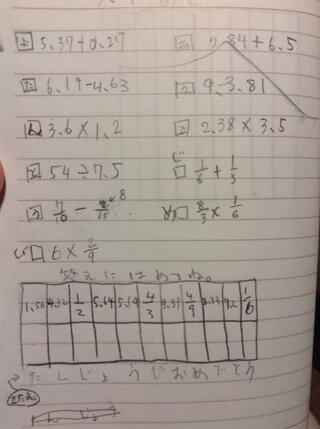 5.37+0.27 2.84+6.5
た 6.19-4.63 う 9-3.81
ん 3.6×1.2 2.38×3.5
54÷7.5 じ□ 1/6+1/3
う 7/10-8/15 め□ 8/3×1/6
び□ 6×2/9
答えにはめてね。
1.56 4.32 1/2 5.64 5.19 4/3 9.33 4/9 8.33 7.2 1/6
たんじょうびおめでとう